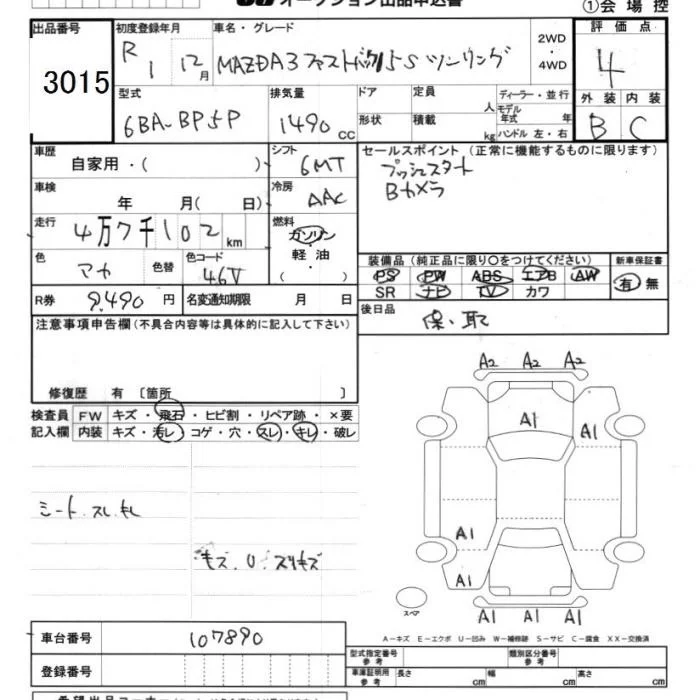 オークション出品申込書
①会場控
出品番号 初度登録年月 車名・グレード 評価点
3015 R1 12月 MAZDA3 ファストバック 15S ツーリング 2WD・4WD 4
型式 排気量 ドア 定員 人 ディーラー・並行 外装 内装
6BA-BP5P 1490cc 形状 積載 kg モデル年式 年 ハンドル 左・右 B C
車歴 自家用・( ) シフト 6MT セールスポイント (正常に機能するものに限ります)
プッシュスタート
Bカメラ
車検 年 月( 日) 冷房 AAC
走行 4万7千102km 燃料 ガソリン・軽油
色 マカ 色替 色コード 46V 装備品 (純正品に限り○をつけてください) 新車保証書
PS PW ABS エアB AW 有・無
SR ナビ TV カワ
R券 9,490円 名変通知期限 月 日 後日品
保・取
注意事項申告欄 (不具合内容等は具体的に記入して下さい)
修復歴 有 〔箇所 〕
A2 A2 A2
検査員 FW キズ・飛石・ヒビ割・リペア跡・×要
記入欄 内装 キズ・汚レ・コゲ・穴・スレ・キレ・破レ
A1 A1
シート スレ キレ
キズ、U、スリキズ
A1
A1
スペア
A1 A1 A1
A－キズ E－エクボ U－凹み W－補修跡 S－サビ C－腐食 XX－交換済
車台番号 107890
型式指定番号 参考 類別区分番号 参考
登録番号 車庫証明用 参考 長さ cm 幅 cm 高さ cm